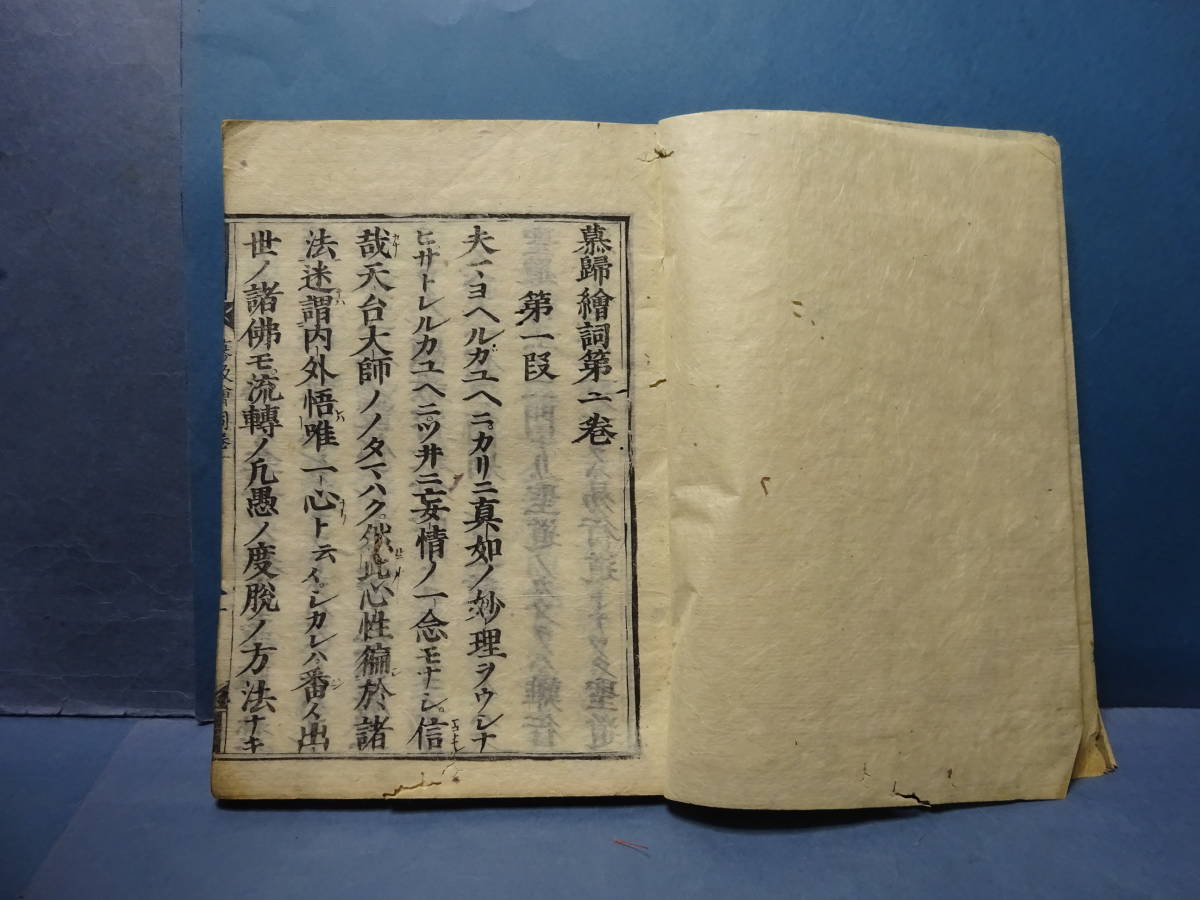 慕歸繪詞第二卷
第一段
夫一ヽヨヘルガユヘニ。カリニ真如ノ妙理ヲウシナ
ヒ。サトレルカユヘニ。ツ井ニ妄情ノ一念モナシ。信
哉天台大師ノノタマハク。然此心性徧於諸
法迷謂内外悟唯一心ト云イ。シカレハ番々出
世ノ諸佛モ。流轉ノ凡愚ノ度脫ノ方法ナキ